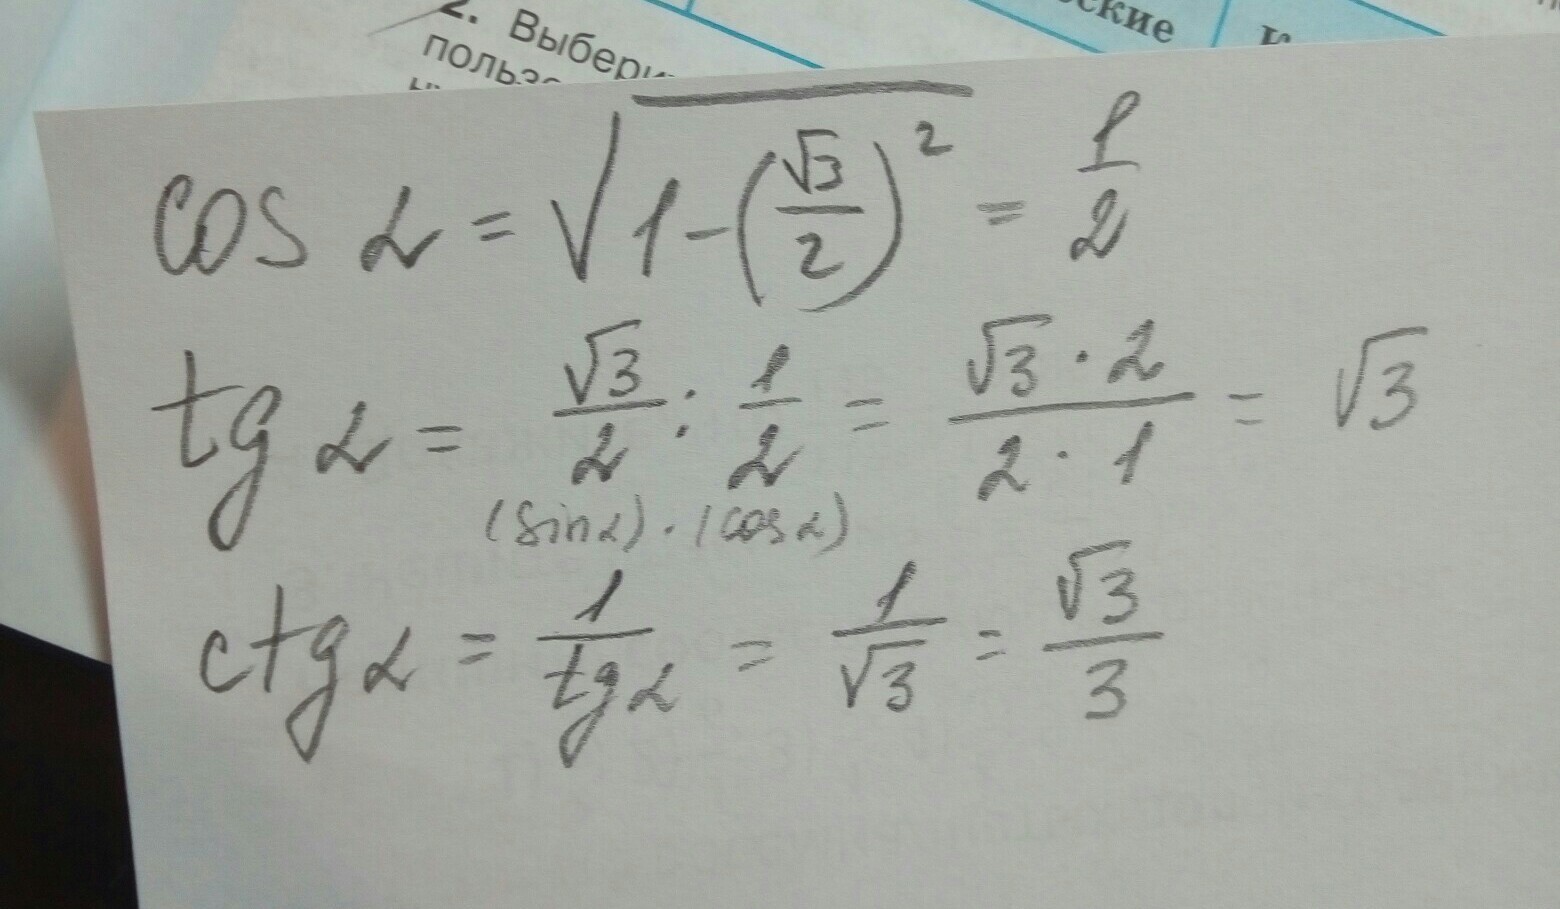 2. Выбери
польз
ские
cos α = √(1-(√3/2)²) = 1/2
tg α = √3/2 : 1/2 = √3·2/2·1 = √3
(sin α) · (cos α)
ctg α = 1/tg α = 1/√3 = √3/3